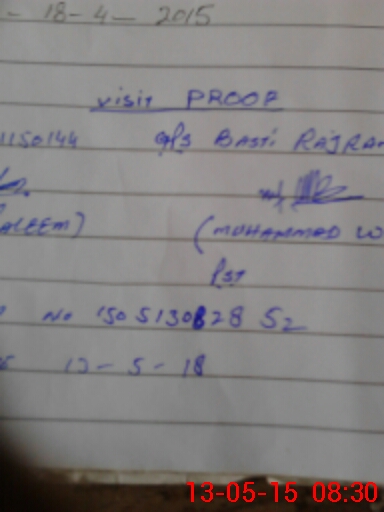 - 18-4-2015
visit PROOF
1150144 GPS BASTI RAJRA
ALEEM) (MUHAMMAD W
PST
No 150513082852
13-5-18
13-05-15 08:30